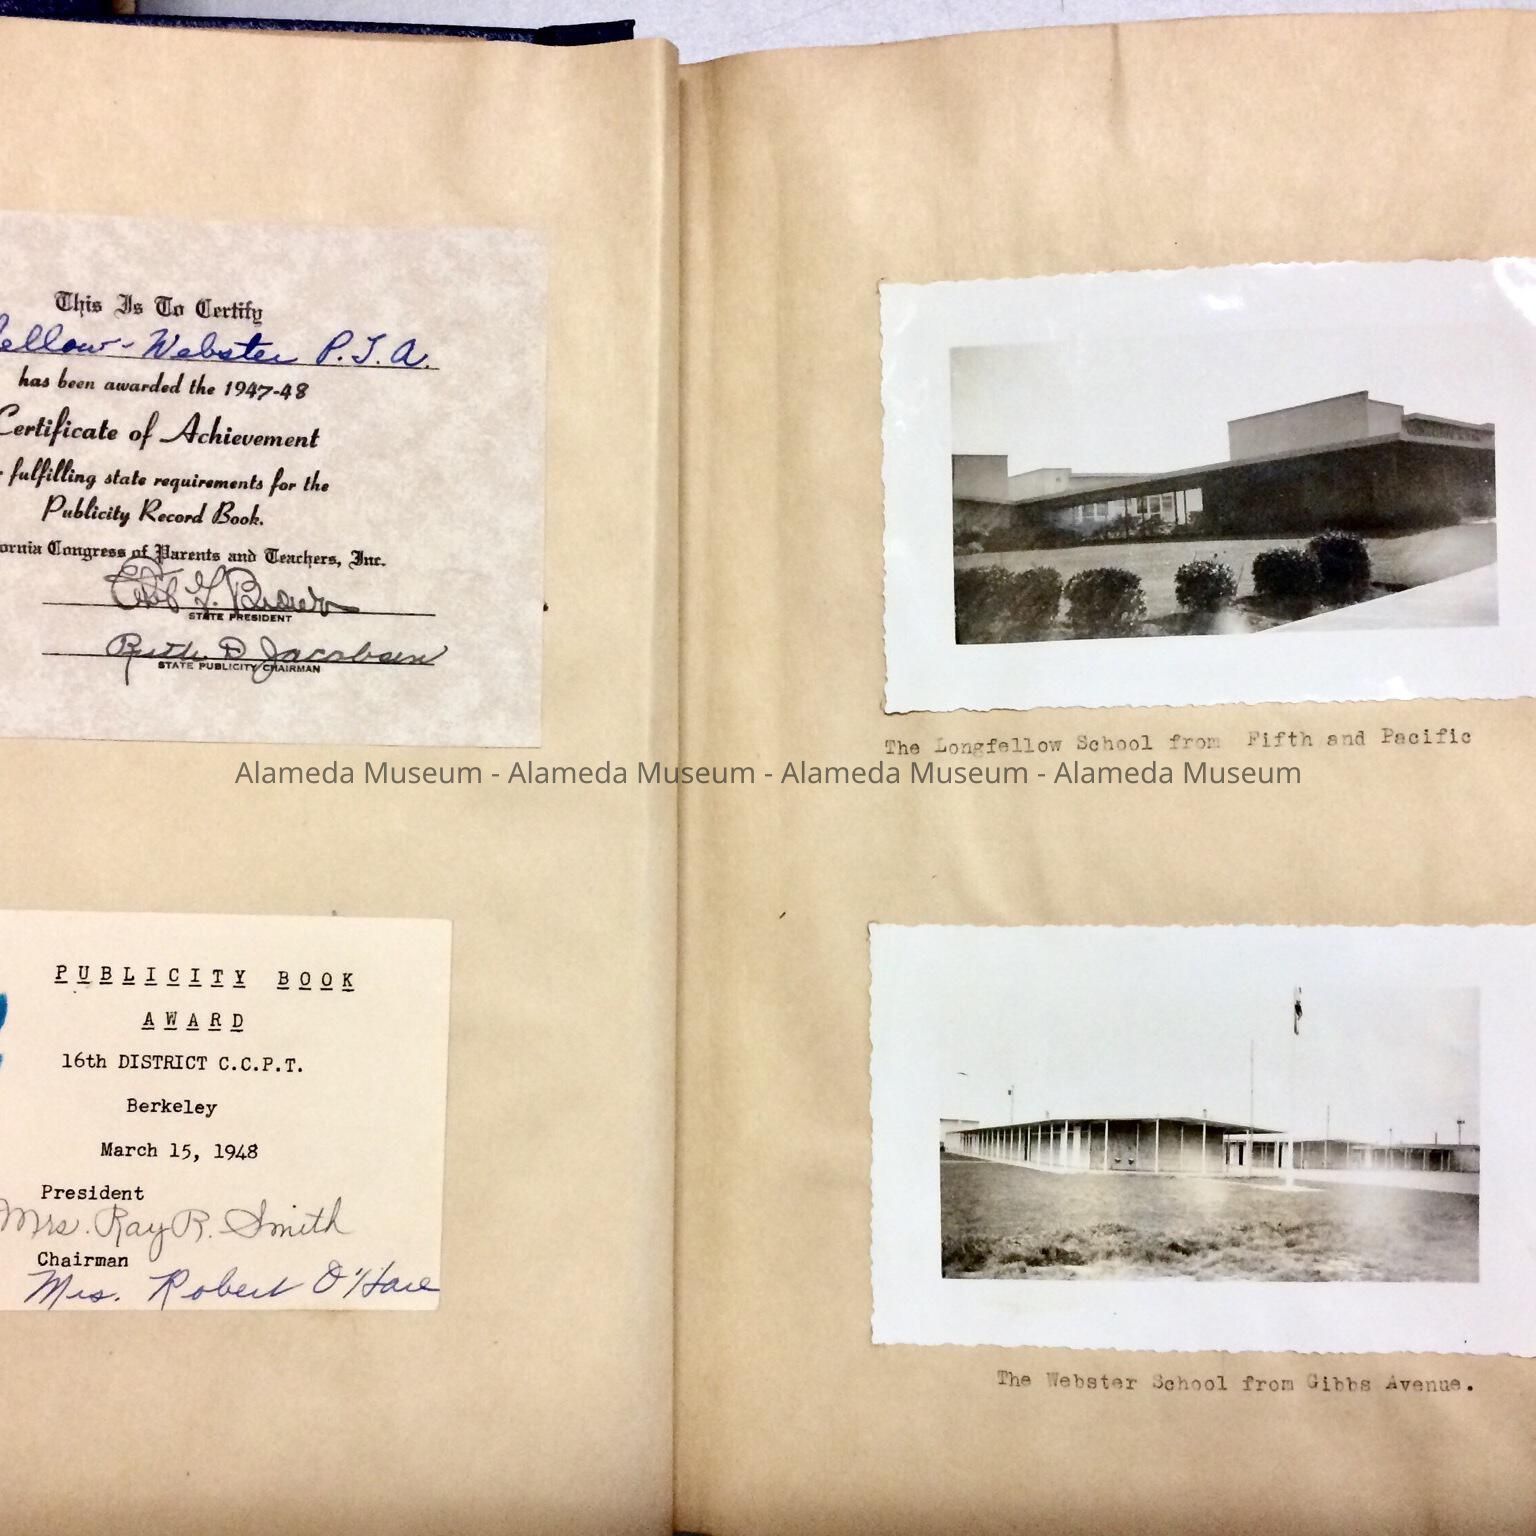 This Is To Certify
ellow-Webster P.T.A.
has been awarded the 1947-48
Certificate of Achievement
fulfilling state requirements for the
Publicity Record Book.
ornia Congress of Parents and Teachers, Inc.
Brown
STATE PRESIDENT
Ruth D Jacobsen
STATE PUBLICITY CHAIRMAN
PUBLICITY BOOK
AWARD
16th DISTRICT C.C.P.T.
Berkeley
March 15, 1948
President
Mrs. Ray R. Smith
Chairman
Mrs. Robert O'Hare
The Longfellow School from Fifth and Pacific
Alameda Museum - Alameda Museum - Alameda Museum - Alameda Museum
The Webster School from Gibbs Avenue.